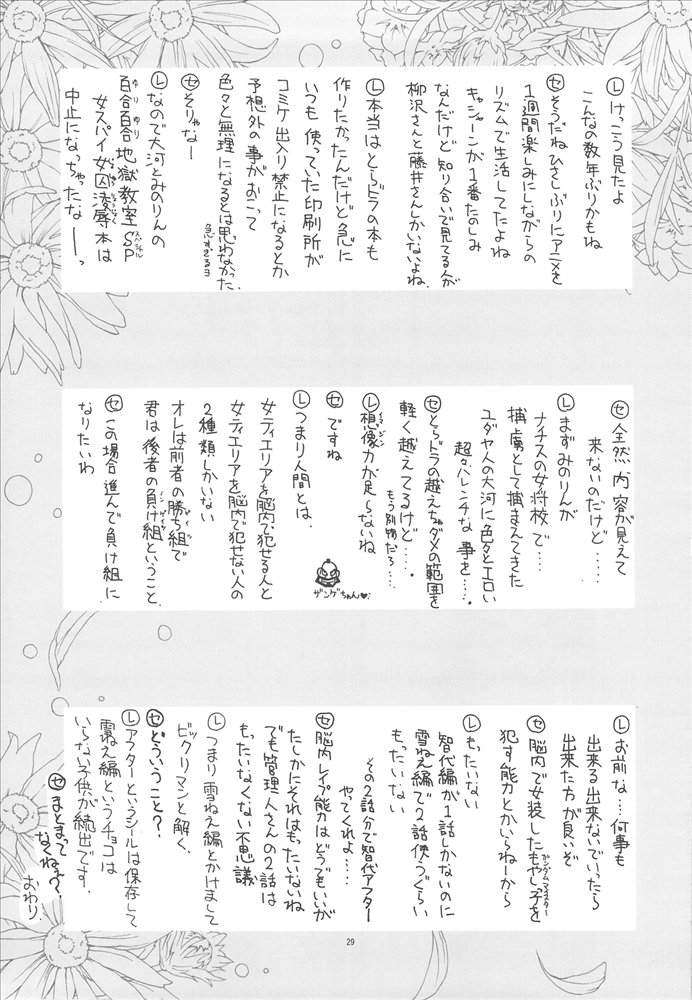 Ⓛけっこう見たよ
こんなの数年ぶりかもね
Ⓢそうだねひさしぶりにアニメを
1週間楽しみにしながらの
リズムで生活してたよね
キャシャーンが1番たのしみ
なんだけど知り合いで見てる人が
柳沢さんと藤井さんしかいないよね
Ⓛ本当はとらドラの本も
作りたかったんだけど急に
いつも使っていた印刷所が
コミケ出入り禁止になるとか
予想外の事がおこって
色々と無理になるとは思わなかった
急すぎるヨ
Ⓢそりゃなー
Ⓛなので大河とみのりんの
百合百合地獄教室SP
女スパイ女囚凌辱本は
中止になっちゃったなーっ
Ⓢ全然内容が見えて
来ないのだけど……
Ⓛまずみのりんが
ナチスの女将校で…
捕虜として捕まえてきた
ユダヤ人の大河に色々とエロい
超々ハレンチな事を……
Ⓢとらドラの越えちゃダメの範囲を
軽く越えてるけど……
もう別物だろ…
Ⓛ想像力が足らないね
Ⓢですね
Ⓛつまり人間とは、
女ティエリアを脳内で犯せる人と
女ティエリアを脳内で犯せない人の
2種類しかいない
オレは前者の勝ち組で
君は後者の負け組ということ
Ⓢこの場合進んで負け組に
なりたいわ
ザンゲちゃん♥
Ⓛお前な…何事も
出来る出来ないでいったら
出来た方が良いぞ
Ⓢ脳内で女装したもやしっ子を
犯す能力とかいらねーから
Ⓛもったいない
智代編が1話しかないのに
雪ねえ編で2話使うぐらい
もったいない
その2話分で智代アフター
やてくれよ……
Ⓢ脳内レイプ能力はどうでもいいが
たしかにそれはもったいないね
でも管理人さんの2話は
もったいなくない不思議
Ⓛつまり雪ねえ編とかけまして
ビックリマンと解く、
Ⓢどういうこと？
Ⓛアフターというシールは保存して
雪ねえ編というチョコは
いらない子供が続出です。
Ⓢまとまって
なくね？
おわり
29